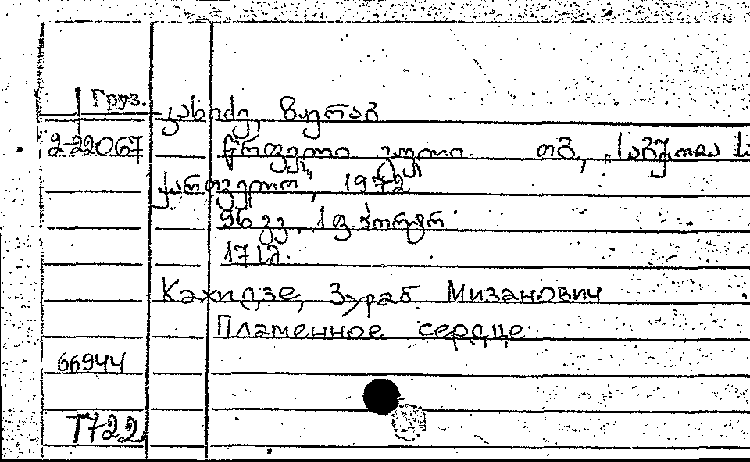 Груз.
კახიძე, ზურაბ
2-22067 წრფელი გული თბ., „საბჭოთა
ქართველო", 1972
96 გვ. 1 ფ. პორტრ.
1712.
Кахидзе, Зураб Мизанович
Пламенное сердце
66944
Т722